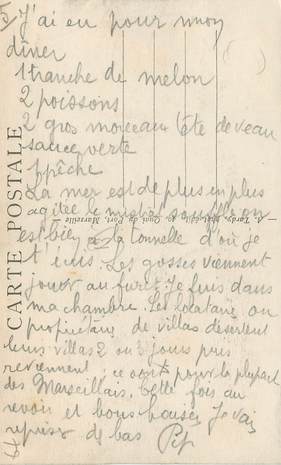 5/ J'ai eu pour mon
dîner
1 tranche de melon
2 poissons
2 gros morceaux tête de veau
sauce verte
1 pêche
La mer est de plus en plus
agitée le mistral souffle on
est bien à la tonnelle d'où je
t'écris. Les gosses viennent
jouer au furet je fuis dans
ma chambre. Les locataire ou
propriétaire de villas désertent
leurs villas 2 ou 3 jours puis
reviennent; ce sont pour la plupart
des Marseillais. Cette fois au
revoir et bons baisers Je vais
repriser de bas Pip
CARTE POSTALE